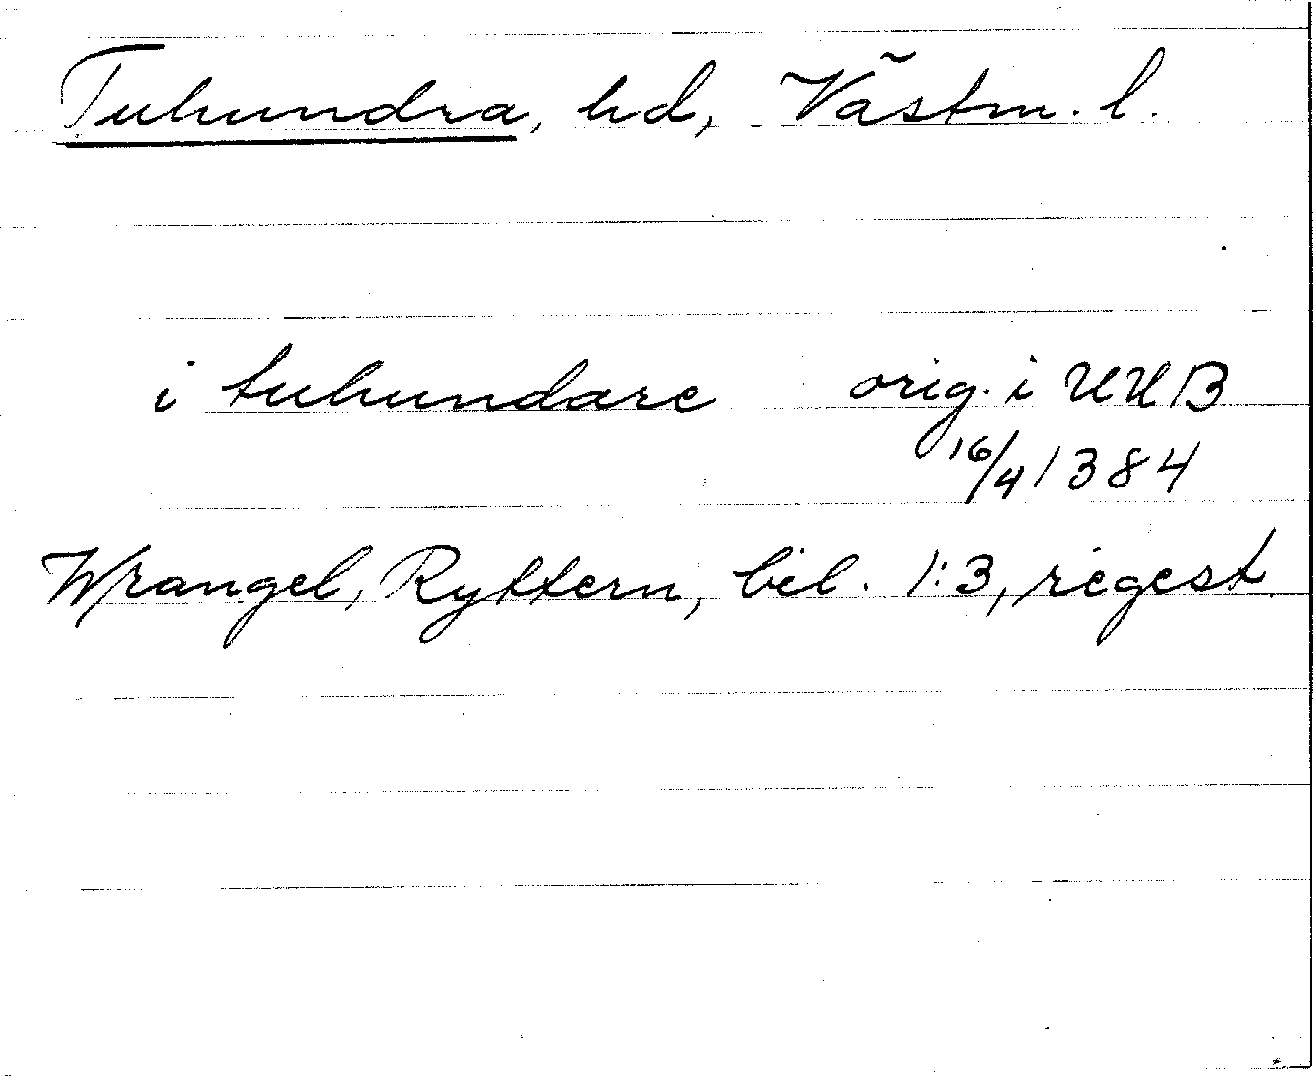 Tuhundra, hd, Västm. l.
i tuhundare orig. i UUB
16/4 1384
Wrangel, Ryttern, bil. 1:3, regest.